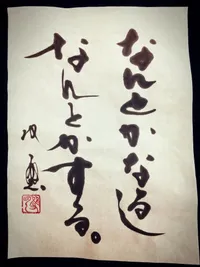 なんとかなる
なんとかする。